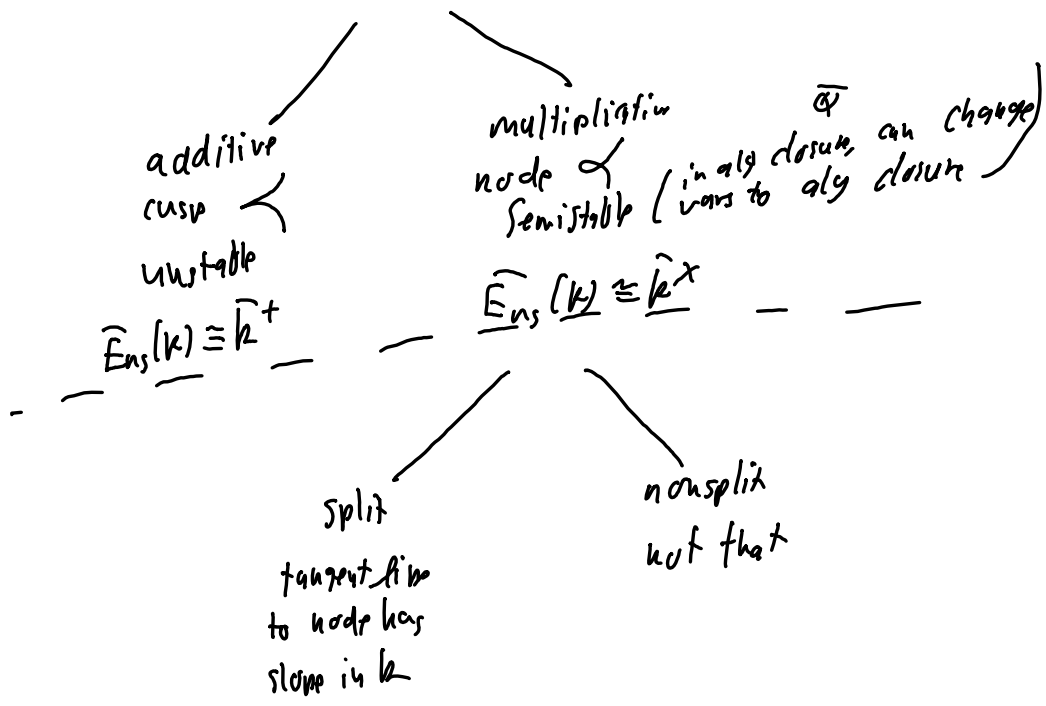 additive
cusp
unstable
Ẽns(k) ≅ k̄⁺
multiplicative
node
semistable (in alg closure, can change
vars to alg closure)
Q̄
Ẽns(k) ≅ k̄ˣ
split
tangent line
to node has
slope in k
nonsplit
not that